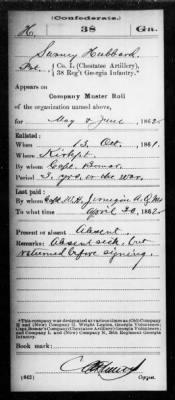 (Confederate.)
H. 38 Ga.
Hubbard
Pvt. { Co. I, (Chestatee Artillery),
38 Reg't Georgia Infantry.*
Appears on
Company Muster Roll
of the organization named above,
for May & June, 1862.
Enlisted:
When 15 Oct, 1861.
Where
By whom Capt. Bomar
Period 3 yrs. or the war.
Last paid:
By whom Capt. W.H. Jernigan A.Q.M.
To what time April 30, 1862.
Present or absent Absent.
Remarks: Absent sick, but
returned before signing.
*This company was designated at various times as (Old) Company
H and (New) Company G, Wright Legion, Georgia Volunteers;
Company (Chestatee Artillery) Georgia Volunteers; and
Company L and (New) Company N, 38th Regiment Georgia
Infantry.
Book mark:
(642) Copyist.